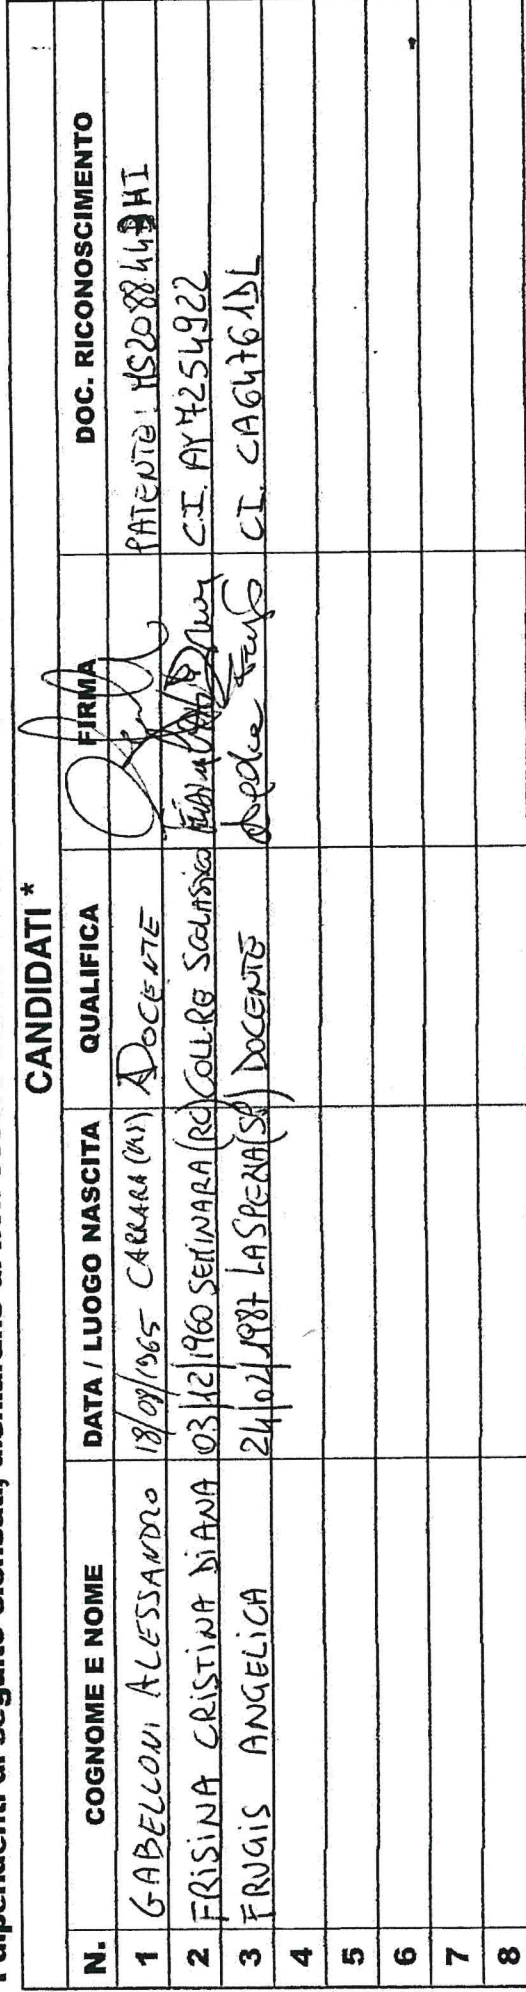 CANDIDATI *
N. COGNOME E NOME DATA / LUOGO NASCITA QUALIFICA FIRMA DOC. RICONOSCIMENTO
1 GABELLONI ALESSANDRO CARRARA DOCENTE PATENTE:
2 FRISINA CRISTINA DIANA 03/12/1960 SEMINARA (RC) COLL.RE SCOLASTICO C.I. AY7254922
3 FRUGIS ANGELICA 24/02/1987 LA SPEZIA (SP) DOCENTE CI. CA64761DL
4
5
6
7
8